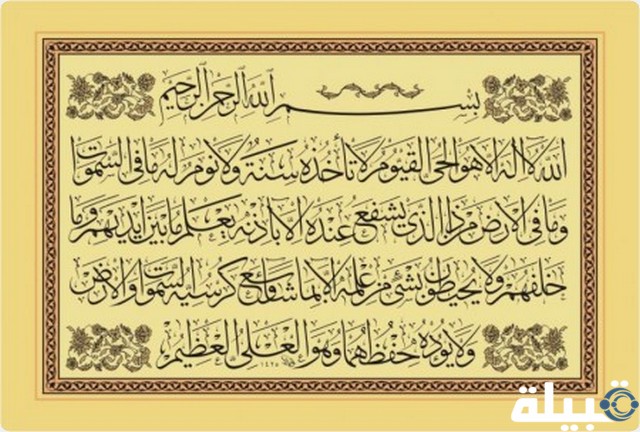 بسم الله الرحمن الرحيم
الله لا اله الا هو الحي القيوم لا تأخذه سنة ولا نوم له ما في السموات
وما في الارض من ذا الذي يشفع عنده الا باذنه يعلم ما بين ايديهم وما
خلفهم ولا يحيطون بشئ من علمه الا بما شاء وسع كرسيه السموات والارض
ولا يؤده حفظهما وهو العلي العظيم
قبيلة